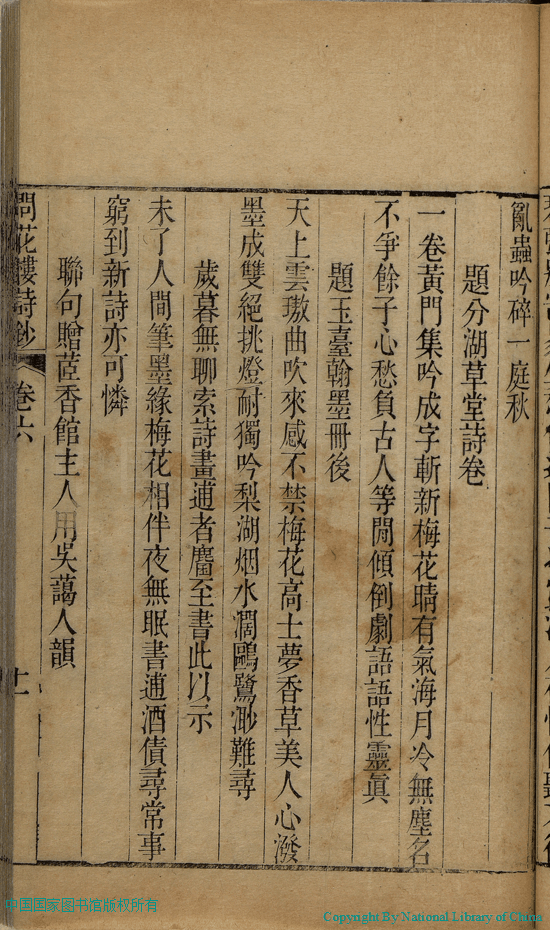 亂蟲吟碎一庭秋
題分湖草堂詩卷
一卷黃門集吟成字斬新梅花晴有氣海月冷無塵名
不爭餘子心愁負古人等閒傾倒劇語語性靈眞
題玉臺翰墨冊後
天上雲璈曲吹來感不禁梅花高士夢香草美人心潑
墨成雙絕挑燈耐獨吟梨湖烟水濶鷗鷺渺難尋
歲暮無聊索詩畫逋者麕至書此以示
未了人間筆墨緣梅花相伴夜無眠書逋酒債尋常事
窮到新詩亦可憐
聯句贈茝香館主人用吳藹人韻
問花樓詩鈔 卷六 十一
中国国家图书馆版权所有
Copyright By National Library of China